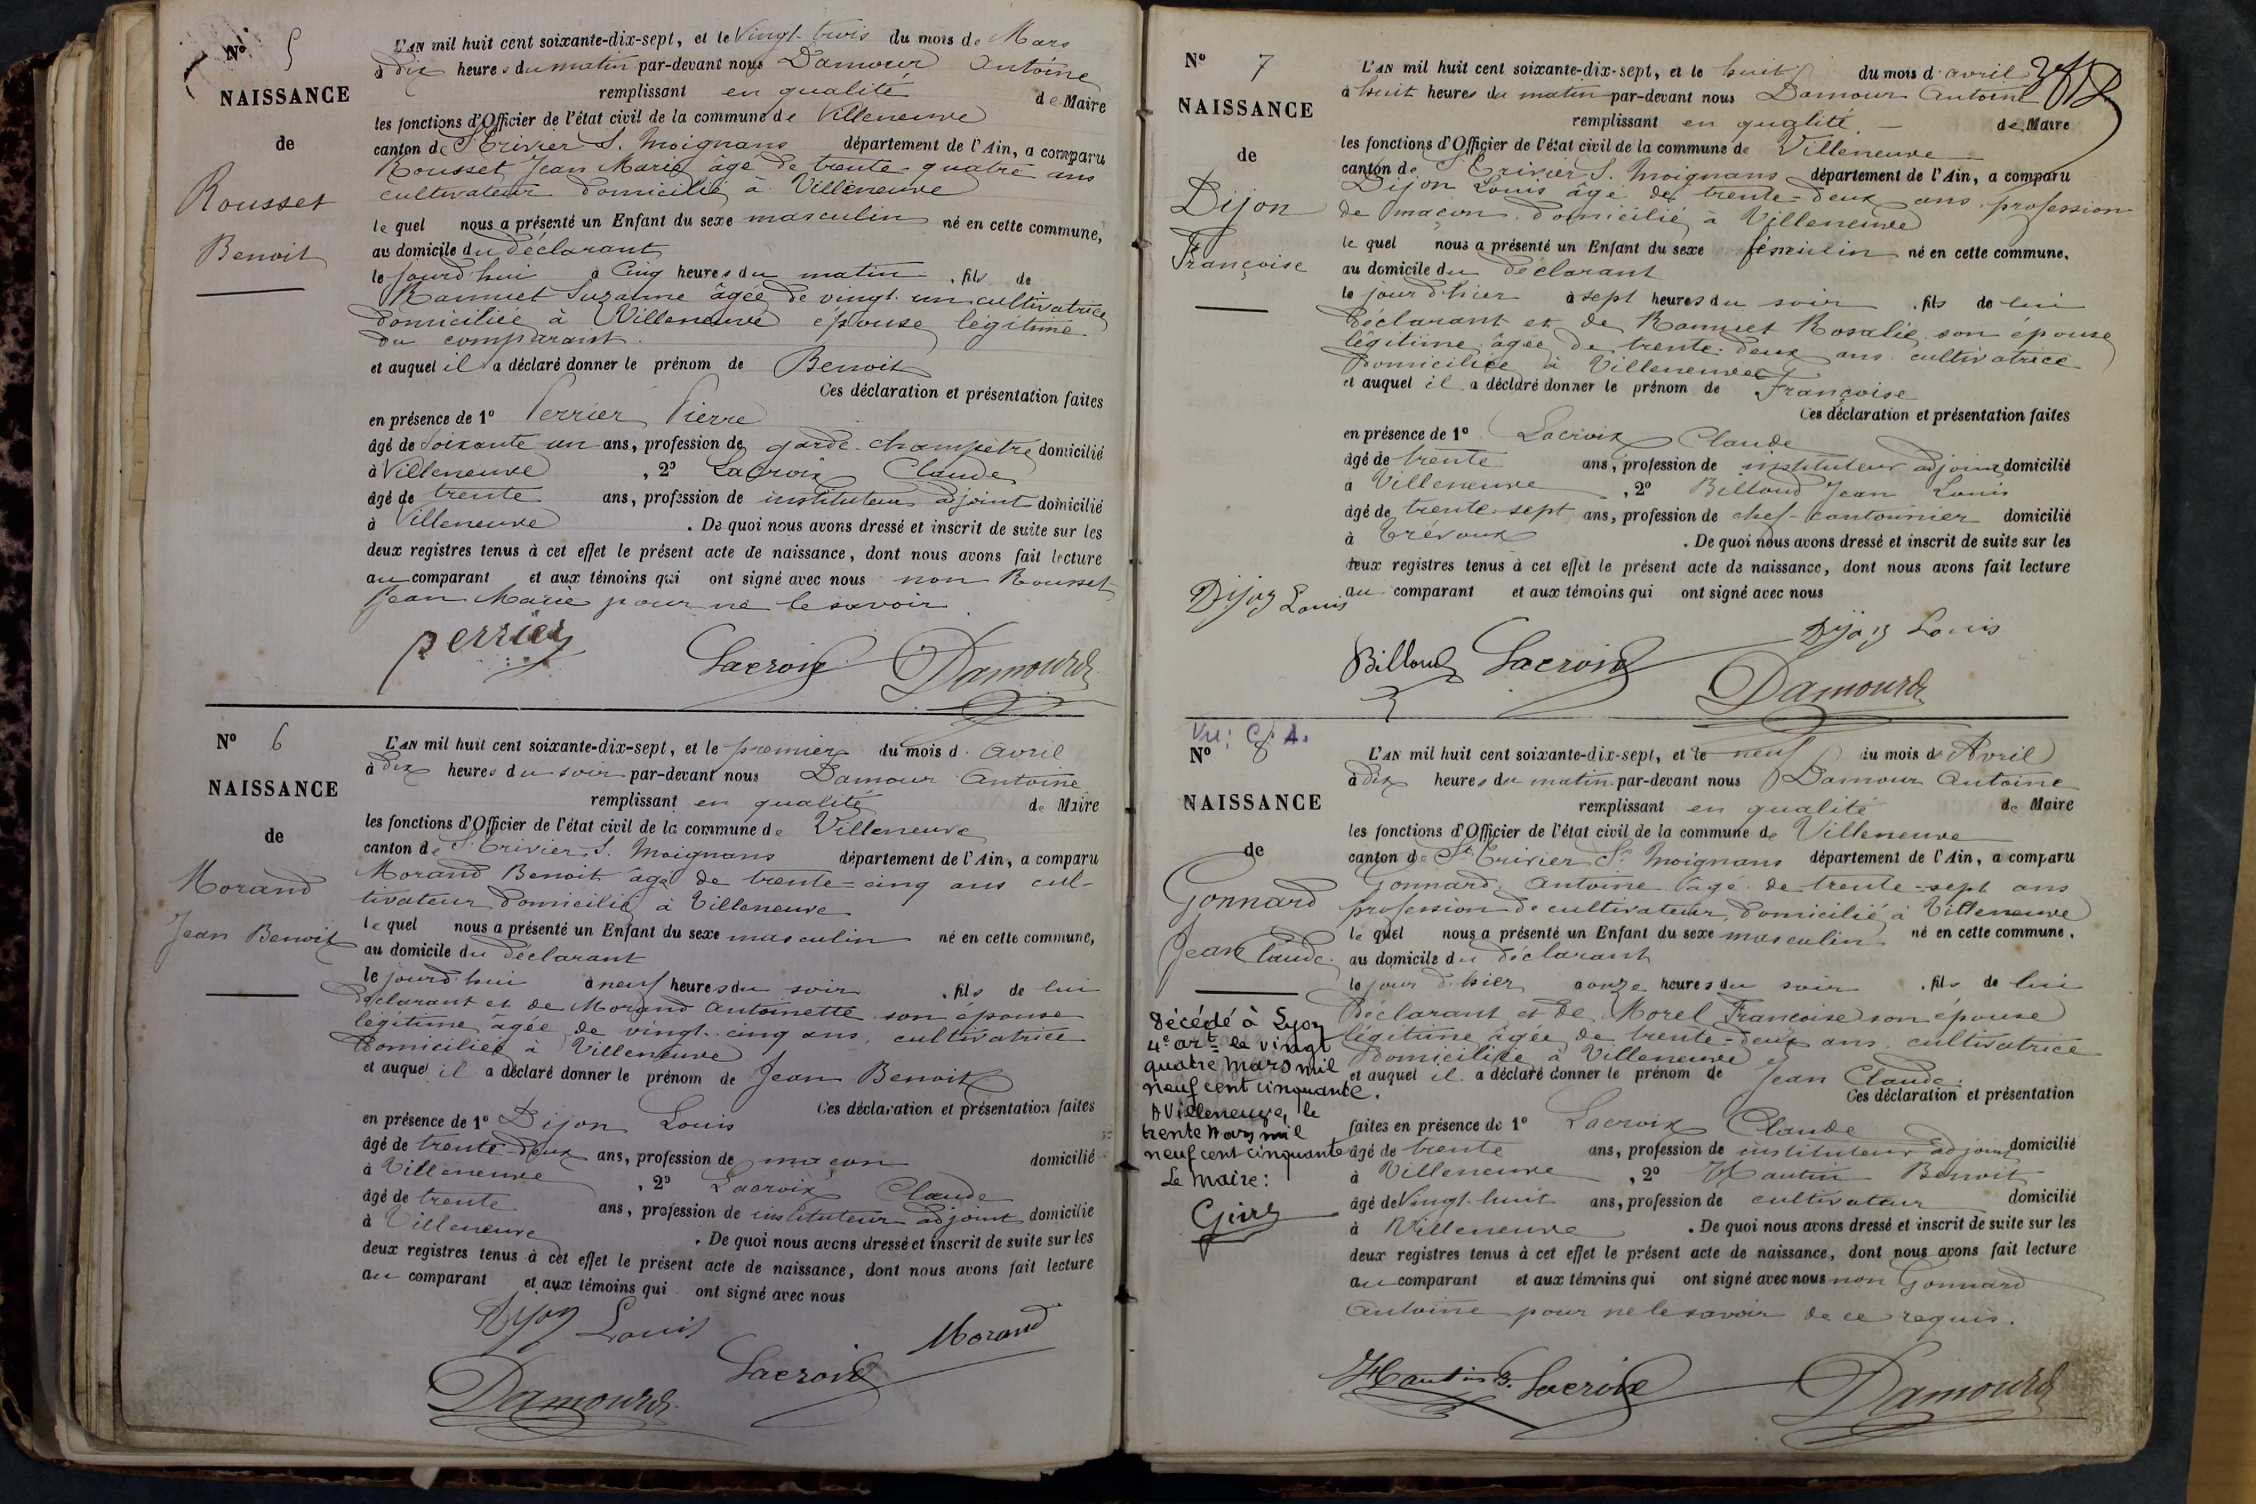 N° 5
NAISSANCE
de
Rousset
Benoit
L'AN mil huit cent soixante-dix-sept, et le vingt trois du mois de Mars
à dix heures du matin par-devant nous Damour Antoine
remplissant en qualité de Maire
les fonctions d'Officier de l'état civil de la commune de Villeneuve
canton de St Trivier S. Moignans département de l'Ain, a comparu
Rousset Jean Marie âgé de trente-quatre ans
cultivateur domicilié à Villeneuve
le quel nous a présenté un Enfant du sexe masculin né en cette commune,
au domicile du déclarant
le jourd'hui à cinq heures du matin, fils de
Ramuet Suzanne âgée de vingt-un cultivatrice
domiciliée à Villeneuve épouse légitime
du comparant.
et auquel il a déclaré donner le prénom de Benoit
Ces déclaration et présentation faites
en présence de 1° Perrier Pierre
âgé de soixante un ans, profession de garde-champêtre domicilié
à Villeneuve, 2° Lacroix Claude
âgé de trente ans, profession de instituteur adjoint domicilié
à Villeneuve. De quoi nous avons dressé et inscrit de suite sur les
deux registres tenus à cet effet le présent acte de naissance, dont nous avons fait lecture
au comparant et aux témoins qui ont signé avec nous non Rousset
Jean Marie pour ne le savoir.
perrier Lacroix Damour
N° 6
NAISSANCE
de
Morand
Jean Benoit
L'AN mil huit cent soixante-dix-sept, et le premier du mois d'avril
à dix heures du soir par-devant nous Damour Antoine
remplissant en qualité de Maire
les fonctions d'Officier de l'état civil de la commune de Villeneuve
canton de St Trivier S. Moignans département de l'Ain, a comparu
Morand Benoit âgé de trente-cinq ans cul-
tivateur domicilié à Villeneuve
le quel nous a présenté un Enfant du sexe masculin né en cette commune,
au domicile du déclarant
le jourd'hui à neuf heures du soir, fils de lui
déclarant et de Morand Antoinette son épouse
légitime âgée de vingt-cinq ans, cultivatrice
domiciliée à Villeneuve
et auquel il a déclaré donner le prénom de Jean Benoit
Ces déclaration et présentation faites
en présence de 1° Dijon Louis
âgé de trente-deux ans, profession de maçon domicilié
à Villeneuve, 2° Lacroix Claude
âgé de trente ans, profession de instituteur adjoint domicilié
à Villeneuve. De quoi nous avons dressé et inscrit de suite sur les
deux registres tenus à cet effet le présent acte de naissance, dont nous avons fait lecture
au comparant et aux témoins qui ont signé avec nous
Dijon Louis Morand
Damour Lacroix
N° 7
NAISSANCE
de
Dijon
Françoise
L'AN mil huit cent soixante-dix-sept, et le huit du mois d'avril
à huit heures du matin par-devant nous Damour Antoine
remplissant en qualité de Maire
les fonctions d'Officier de l'état civil de la commune de Villeneuve
canton de St Trivier S. Moignans département de l'Ain, a comparu
Dijon Louis âgé de trente-deux ans profession
de maçon domicilié à Villeneuve
le quel nous a présenté un Enfant du sexe féminin né en cette commune.
au domicile du déclarant
le jour d'hier à sept heures du soir, fils de lui
déclarant et de Ramuet Rosalie son épouse
légitime âgée de trente-deux ans cultivatrice
domiciliée à Villeneuve
et auquel il a déclaré donner le prénom de Françoise
Ces déclaration et présentation faites
en présence de 1° Lacroix Claude
âgé de trente ans, profession de instituteur adjoint domicilié
à Villeneuve, 2° Billoud Jean Louis
âgé de trente-sept ans, profession de chef-cantonnier domicilié
à Trévoux. De quoi nous avons dressé et inscrit de suite sur les
deux registres tenus à cet effet le présent acte de naissance, dont nous avons fait lecture
au comparant et aux témoins qui ont signé avec nous
Dijon Louis
Dijon Louis
Billoud Lacroix Damour
Vu: C. A.
N° 8
NAISSANCE
de
Gonnard
Jean Claude.
L'AN mil huit cent soixante-dix-sept, et le neuf du mois de Avril
à dix heures du matin par-devant nous Damour Antoine
remplissant en qualité de Maire
les fonctions d'Officier de l'état civil de la commune de Villeneuve
canton de St Trivier S. Moignans département de l'Ain, a comparu
Gonnard Antoine âgé de trente-sept ans
profession de cultivateur, domicilié à Villeneuve
le quel nous a présenté un Enfant du sexe masculin né en cette commune.
au domicile du déclarant
le jour d'hier à onze heures du soir, fils de lui
déclarant et de Morel Françoise son épouse
légitime âgée de trente-deux ans cultivatrice
domiciliée à Villeneuve
et auquel il a déclaré donner le prénom de Jean Claude.
Ces déclaration et présentation
faites en présence de 1° Lacroix Claude
âgé de trente ans, profession de instituteur adjoint domicilié
à Villeneuve, 2° Hautin Benoit
âgé de vingt-huit ans, profession de cultivateur domicilié
à Villeneuve. De quoi nous avons dressé et inscrit de suite sur les
deux registres tenus à cet effet le présent acte de naissance, dont nous avons fait lecture
au comparant et aux témoins qui ont signé avec nous non Gonnard
Antoine pour ne le savoir de ce requis.
Hautin B. Lacroix Damour
Décédé à Lyon
4e art le vingt
quatre mars mil
neuf cent cinquante.
A Villeneuve, le
trente mars mil
neuf cent cinquante
Le Maire: